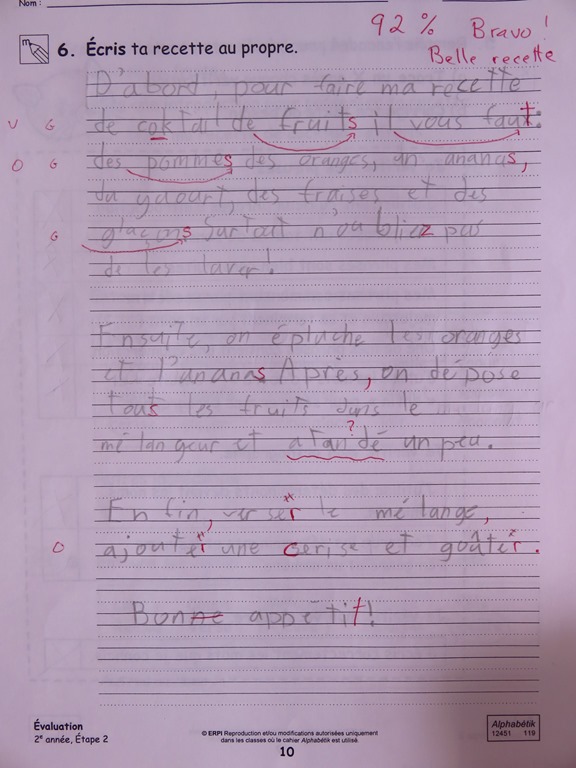 Nom :
92 % Bravo !
6. Écris ta recette au propre.
Belle recette
D'abord, pour faire ma recette
V G de coktail de fruits il vous faut:
O G des pommes des oranges, un ananas,
du yaourt, des fraises et des
G glaçons Surtout n'oubliez pas
de les laver!
Ensuite, on épluche les oranges
et l'ananas Après, on dépose
tous les fruits dans le
mélangeur et atandé un peu.
?
Enfin, verser le mélange,
O ajouter une cerise et goûter.
Bonne appétit!
Évaluation
2e année, Étape 2
© ERPI Reproduction et/ou modifications autorisées uniquement
dans les classes où le cahier Alphabétik est utilisé.
10
Alphabétik
12451 119